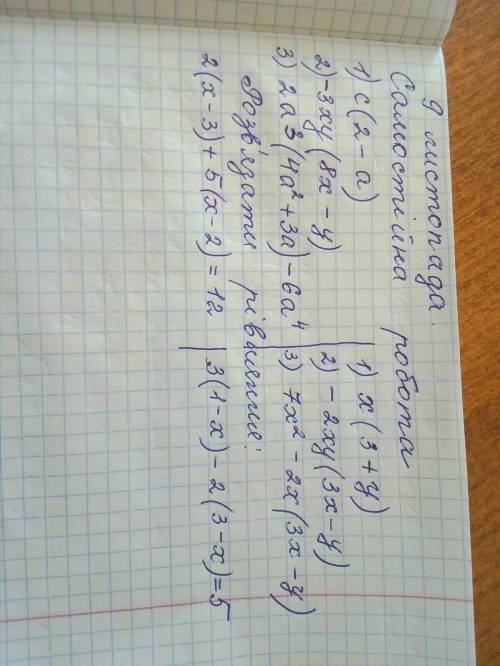 9 листопада.
Самостійна робота
1) c(2-a) | 1) x(3+y)
2) -3xy(8x-y) | 2) -2xy(3x-y)
3) 2a³(4a²+3a)-6a⁴ | 3) 7x²-2x(3x-y)
Розв'язати рівняння:
2(x-3)+5(x-2)=12 | 3(1-x)-2(3-x)=5